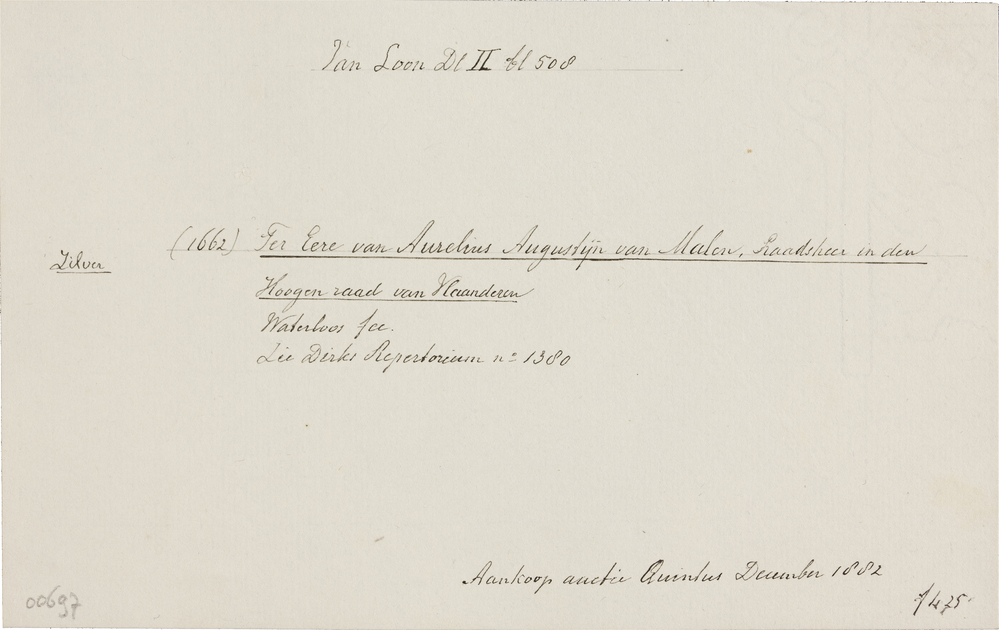 Van Loon Dl II bl 508
(1662) Ter Eere van Aurelius Augustijn van Malen, Raadsheer in den
Zilver
Hoogen raad van Vlaanderen
Waterloos fec.
Zie Dirks Repertorium no 1380
Aankoop auctie Quintus December 1882
f 4,75
00697